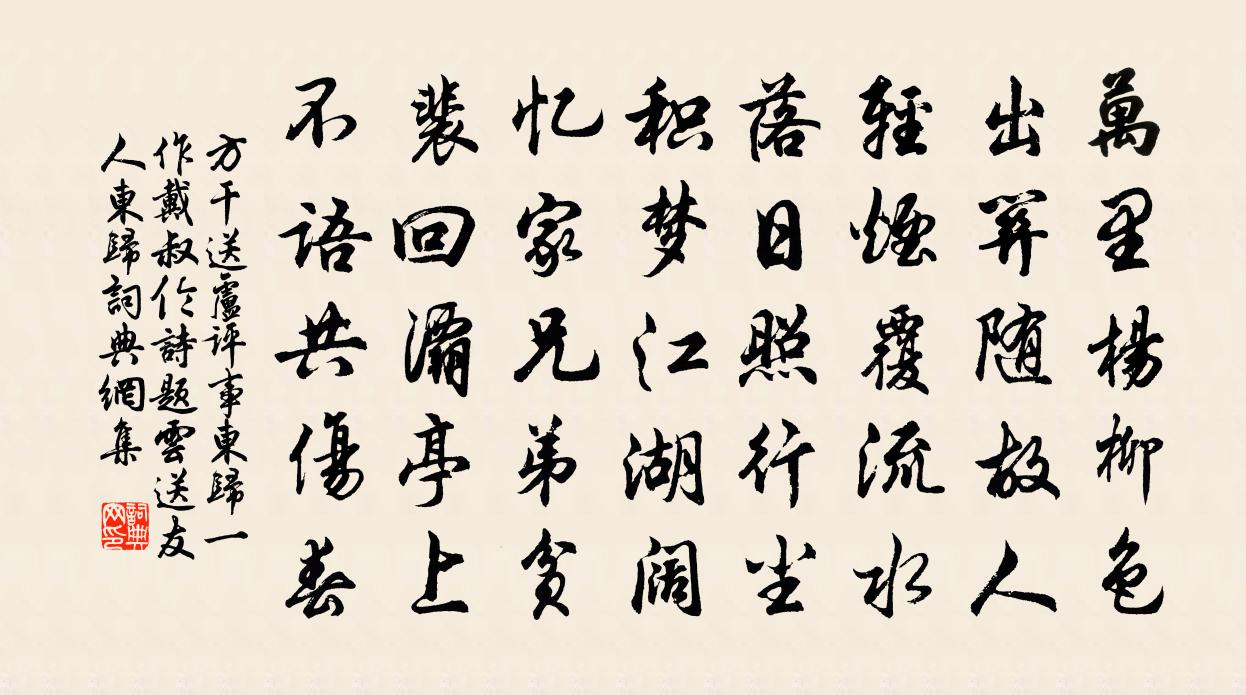 萬里楊柳色
出關随故人
輕煙覆流水
落日照行尘
积梦江湖阔
忆家兄弟贫
裴回灞亭上
不語共傷春
方干送盧評事東歸一
作戴叔伦詩題雲送友
人東歸詞典網集
詞典
网印